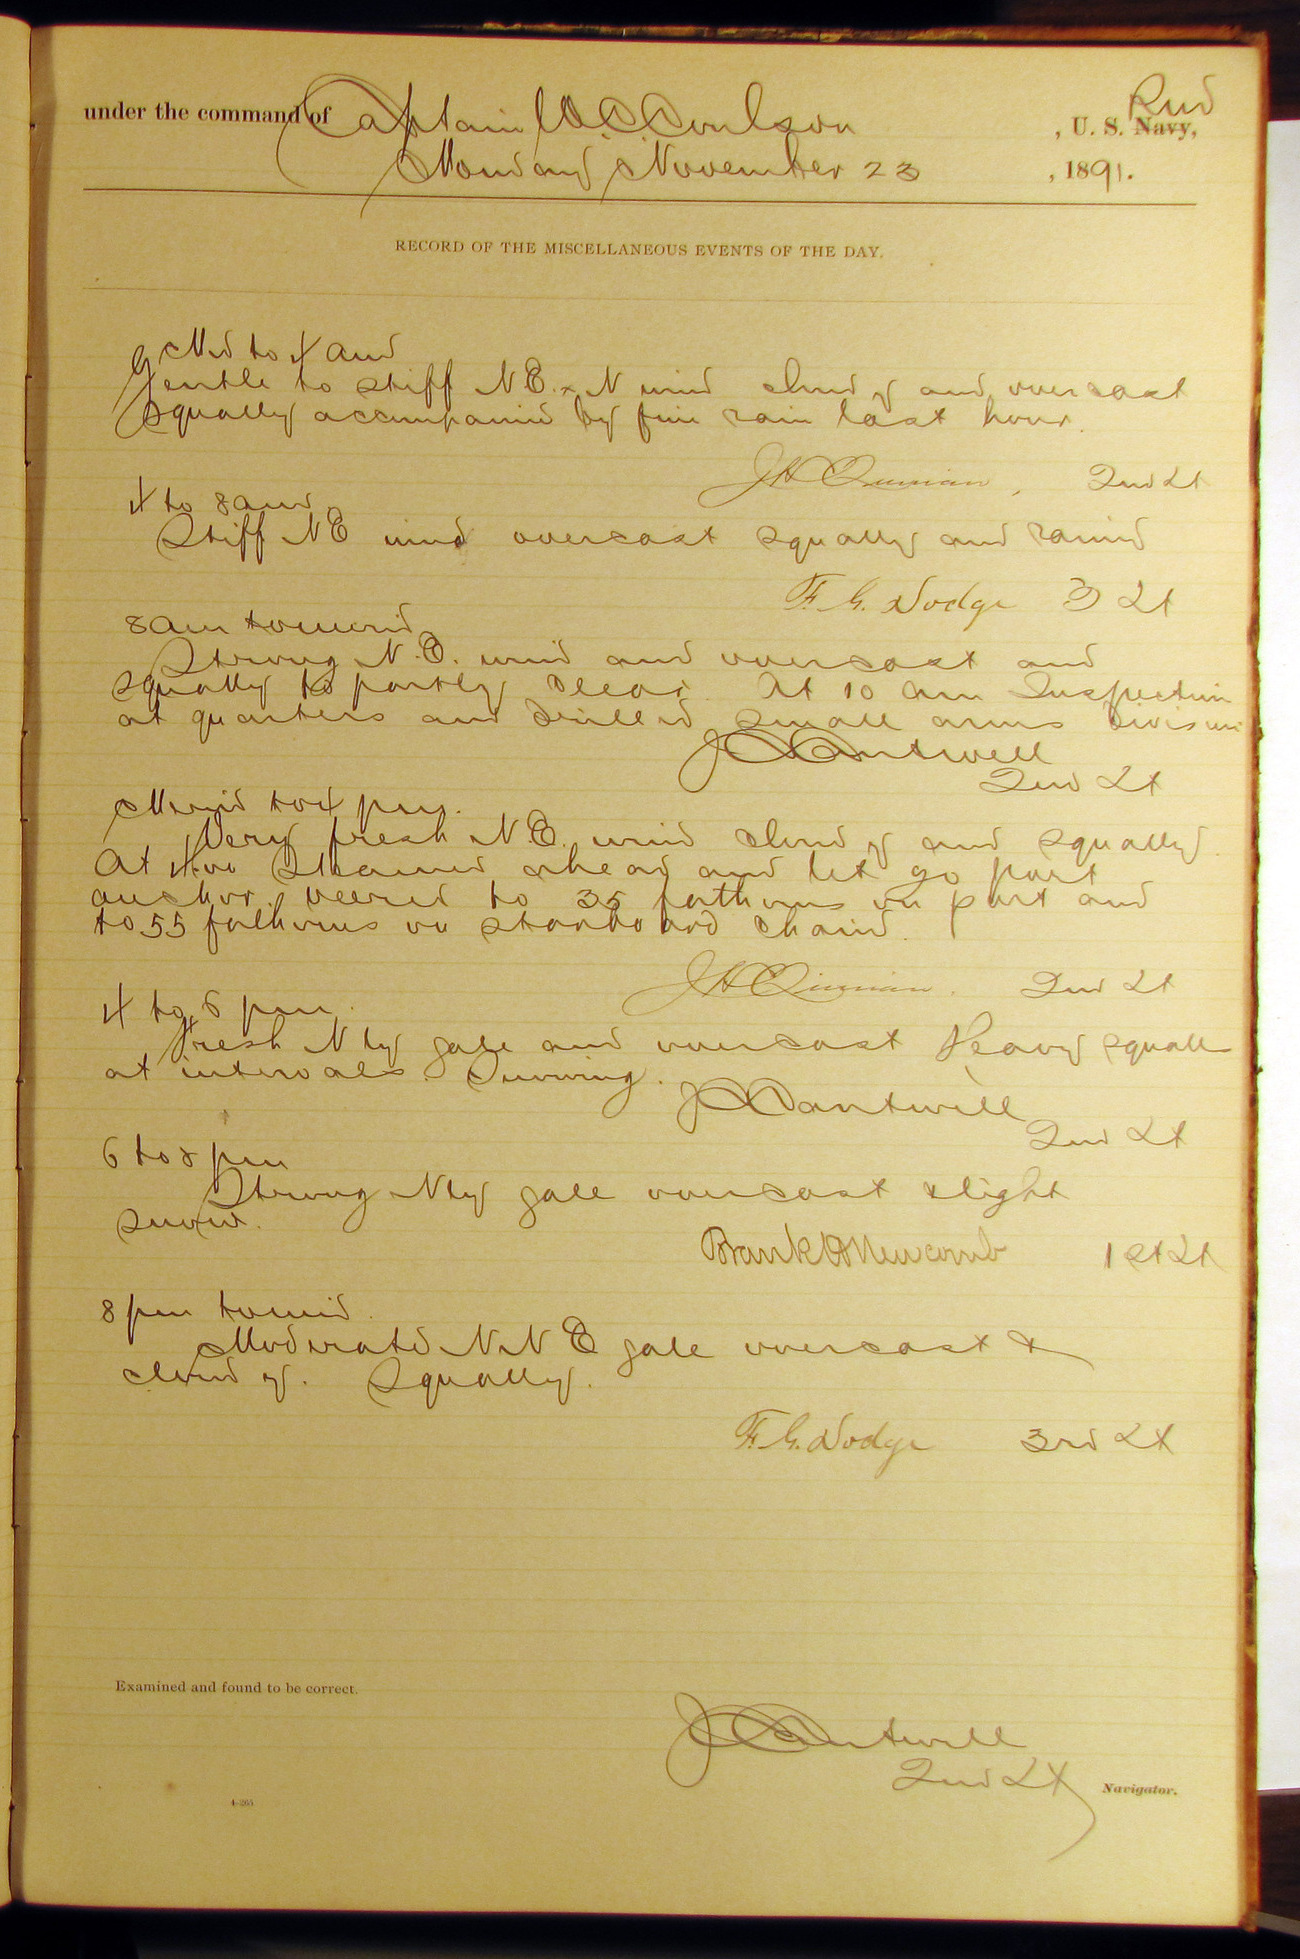 under the command of Captain W.C. Coulson , U. S. Navy, Rev
Monday November 23 , 1891.
RECORD OF THE MISCELLANEOUS EVENTS OF THE DAY.
Mid to 4 am
Gentle to stiff N.E. x N wind cloudy and overcast
Squally accompanied by fine rain last hour.
J H Quinan, 2nd Lt
4 to 8 am
Stiff NE wind overcast squally and rainy
F. G. Dodge 3 Lt
8 am to merid
Strong N.E. wind and overcast and
squally to partly clear. At 10 am Inspection
at quarters and drilled small arms Division
J C Cantwell
2nd Lt
Merid to 4 pm.
Very fresh N.E. wind cloudy and squally.
At 4.00 Steamed ahead and let go port
anchor, veered to 35 fathoms on port and
to 55 fathoms on starboard chain.
J H Quinan. 2nd Lt
4 to 6 pm.
Fresh N'ly gale and overcast Heavy squalls
at intervals. Snowing.
J C Cantwell
2nd Lt
6 to 8 pm
Strong N'ly gale overcast slight
snow.
Frank H Newcomb 1st Lt
8 pm to mid.
Moderate N.N.E gale overcast &
cloudy. Squally.
F. G. Dodge 3rd Lt
Examined and found to be correct.
J C Cantwell
2nd Lt Navigator.
4-265